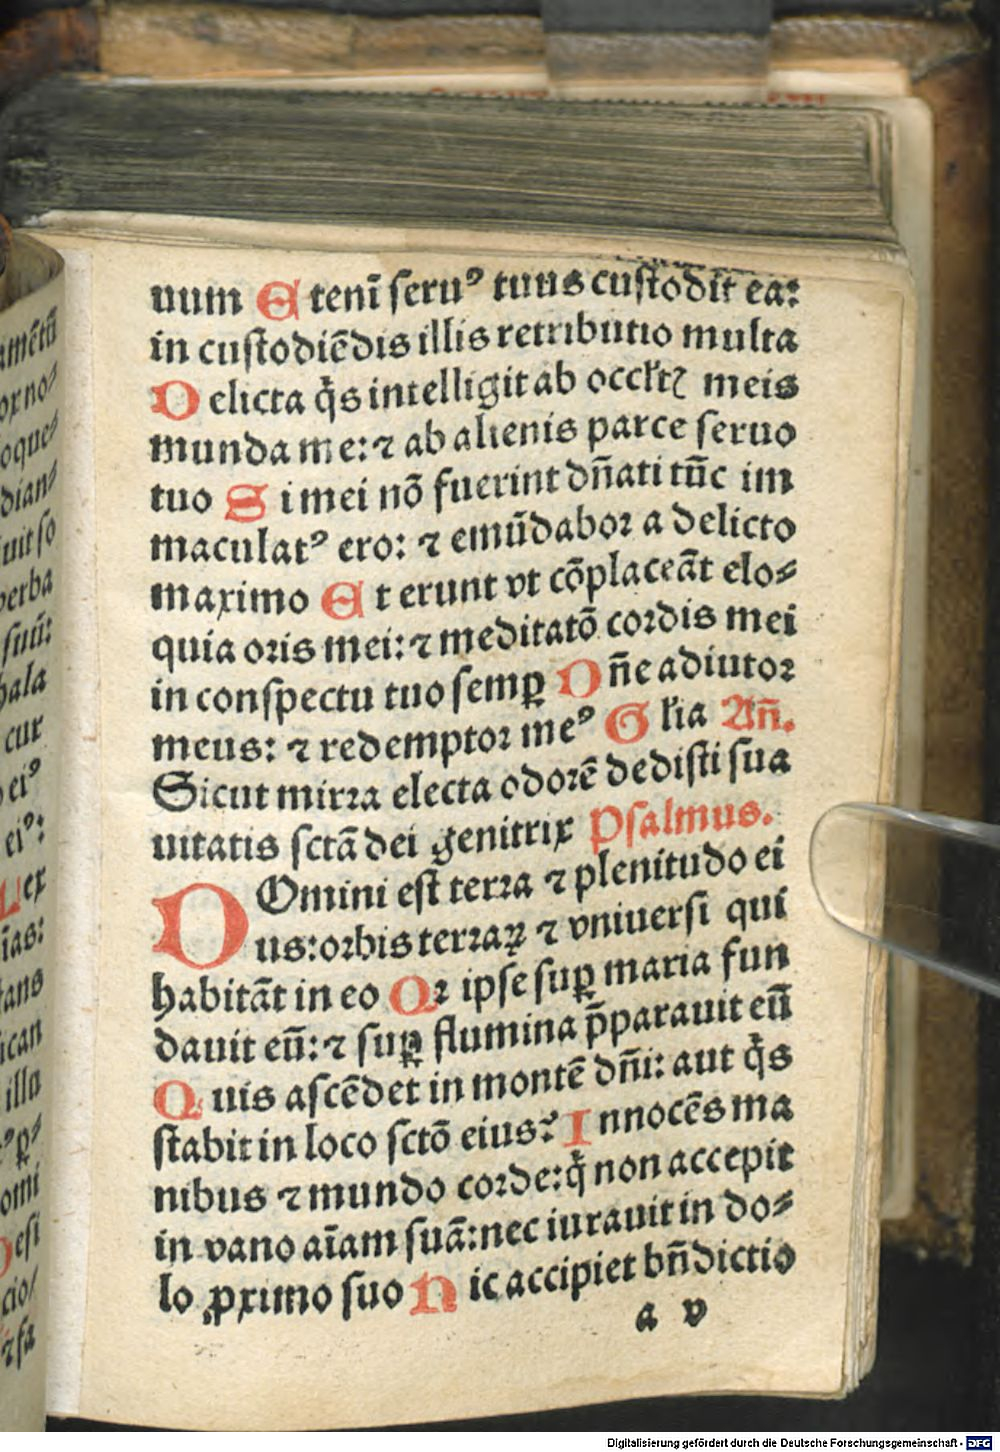 uum Etenī seruꝰ tuus custodit ea:
in custodiēdis illis retributio multa
Delicta q̇s intelligit ab occľtꝫ meis
munda me: ⁊ ab alienis parce seruo
tuo Si mei nō fuerint dn̄ati tūc im
maculatꝰ ero: ⁊ emūdabor a delicto
maximo Et erunt vt cōplaceāt elo⸗
quia oris mei: ⁊ meditatō cordis mei
in conspectu tuo semꝑ Dn̄e adiutor
meus: ⁊ redemptor meꝰ Gľia An̄.
Sicut mirra electa odorē dedisti sua
uitatis sctā dei genitrix Psalmus.
DOmini est terra ⁊ plenitudo ei
us: orbis terraꝝ ⁊ vniuersi qui
habitāt in eo Qr ipse suꝑ maria fun
dauit eū: ⁊ suꝑ flumina p̄parauit eū
Quis ascēdet in montē dn̄i: aut q̇s
stabit in loco sctō eius? Innocēs ma
nibus ⁊ mundo corde: q̇ non accepit
in vano aīam suā: nec iurauit in do⸗
lo ꝓximo suo Nic accipiet bn̄dictio
a v
amētū
or no⸗
oque⸗
dian⸗
uit so
verba
suū:
hala
cur
eiꝰ
eiꝰ:
Lex
īas:
tans
ican
illa
ꝑ⸗
omi
Desi
cio/
⁊ fa
Digitalisierung gefördert durch die Deutsche Forschungsgemeinschaft - DFG